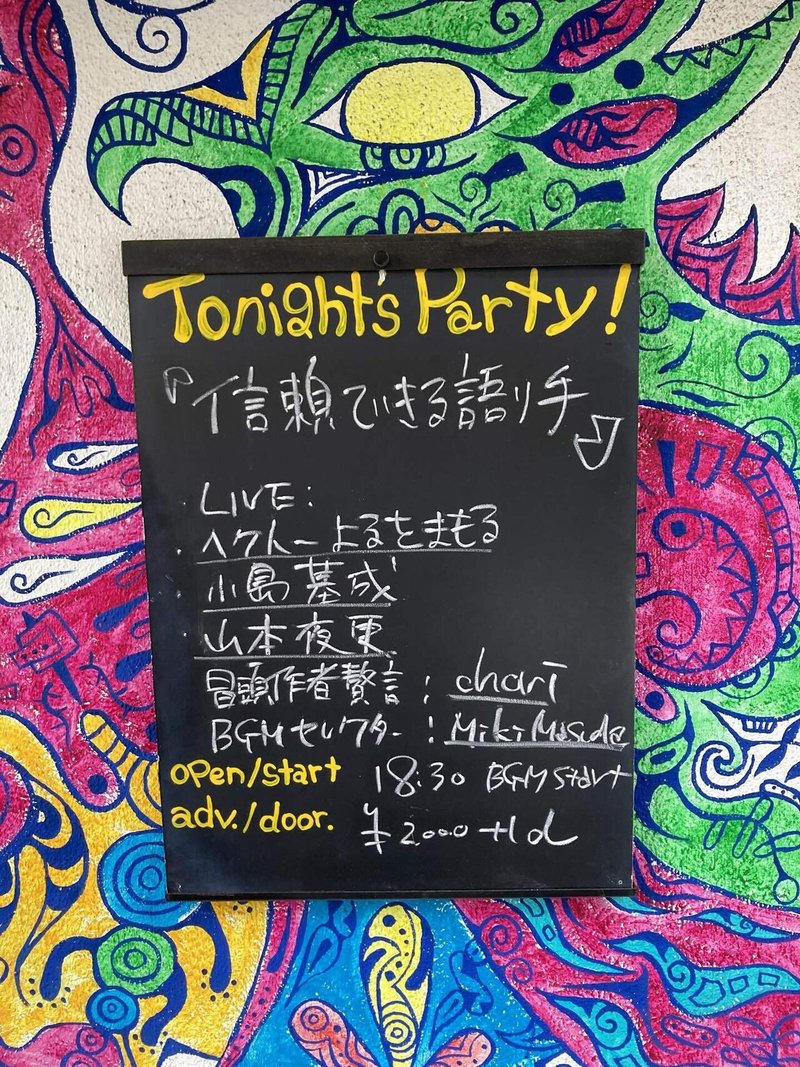 Tonight's Party!
『信頼できる語り手』
LIVE:
・ヘクトーよるをまもる
小島墓成
山本夜更
冒頭作者贅言: chari
BGMセレクター: Miki Masuda
open/start 18:30 BGM start
adv./door. ¥2000+1d